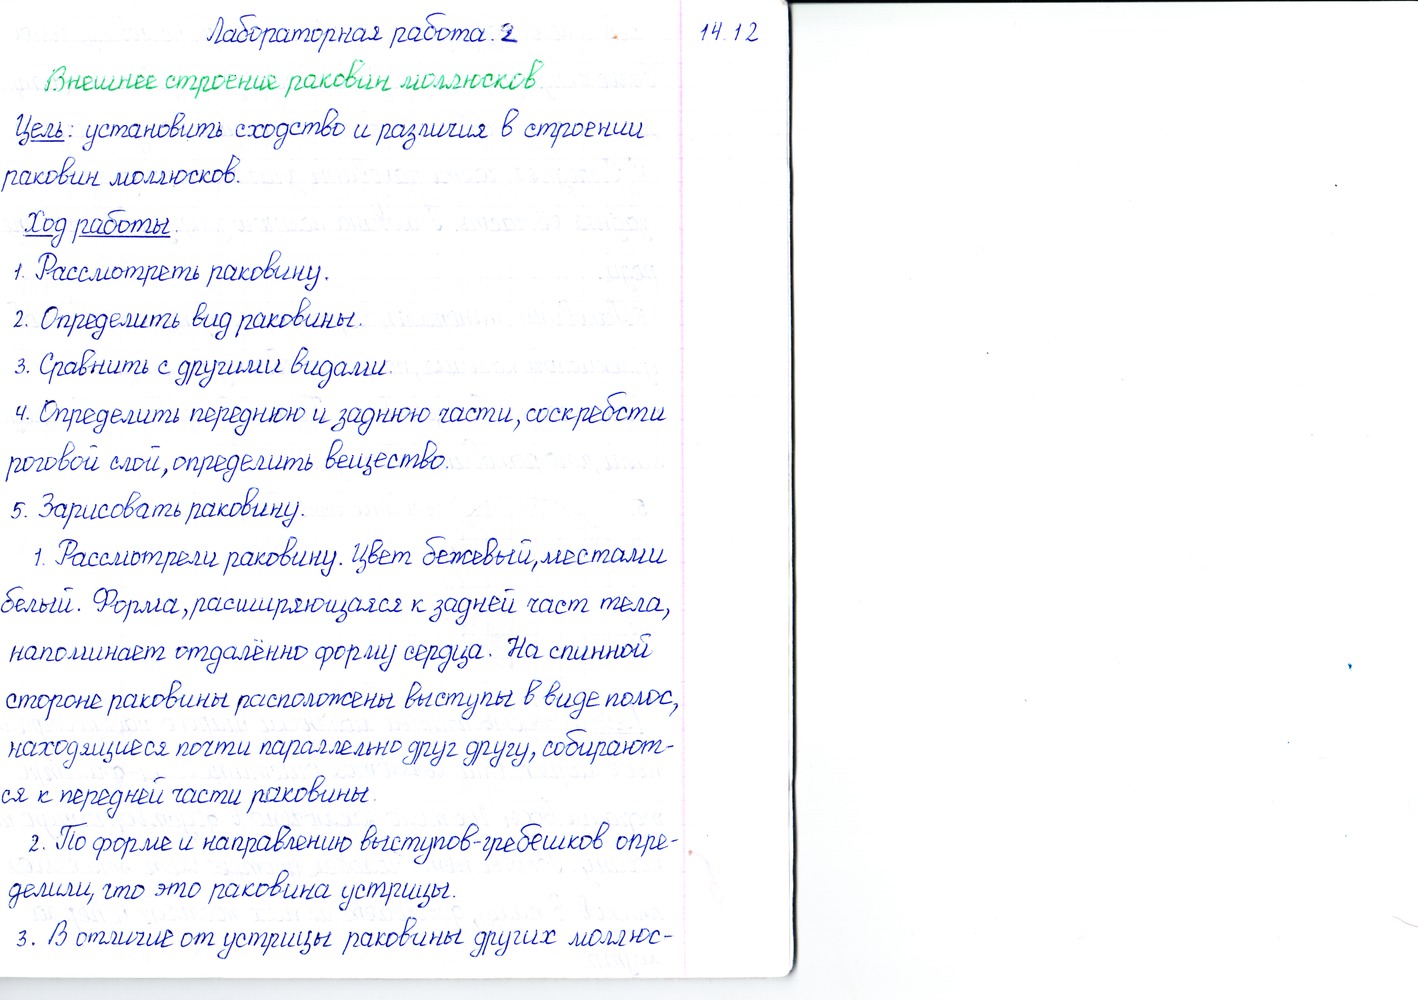 Лабораторная работа. 2
14.12
Внешнее строение раковин моллюсков
Цель: установить сходство и различия в строении
раковин моллюсков.
Ход работы.
1. Рассмотреть раковину.
2. Определить вид раковины.
3. Сравнить с другими видами.
4. Определить переднюю и заднюю части, соскребсти
роговой слой, определить вещество.
5. Зарисовать раковину.
1. Рассмотрели раковину. Цвет бежевый, местами
белый. Форма, расширяющаяся к задней част тела,
напоминает отдалённо форму сердца. На спинной
стороне раковины расположены выступы в виде полос,
находящиеся почти параллельно друг другу, собирают-
ся к передней части раковины.
2. По форме и направлению выступов-гребешков опре-
делили, что это раковина устрицы.
3. В отличие от устрицы раковины других моллюс-